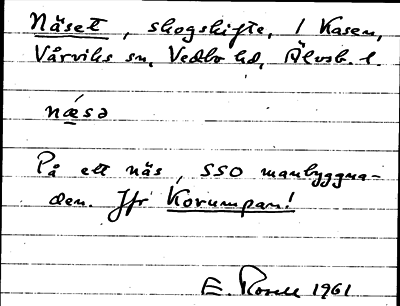 Näset, skogskifte, 1 Kasen,
Vårviks sn, Vedbo hd, Älvsb. l.
næ̀sə
På ett näs, SSO manbyggna-
den. Jfr Korumpan!
E. Rosell 1961